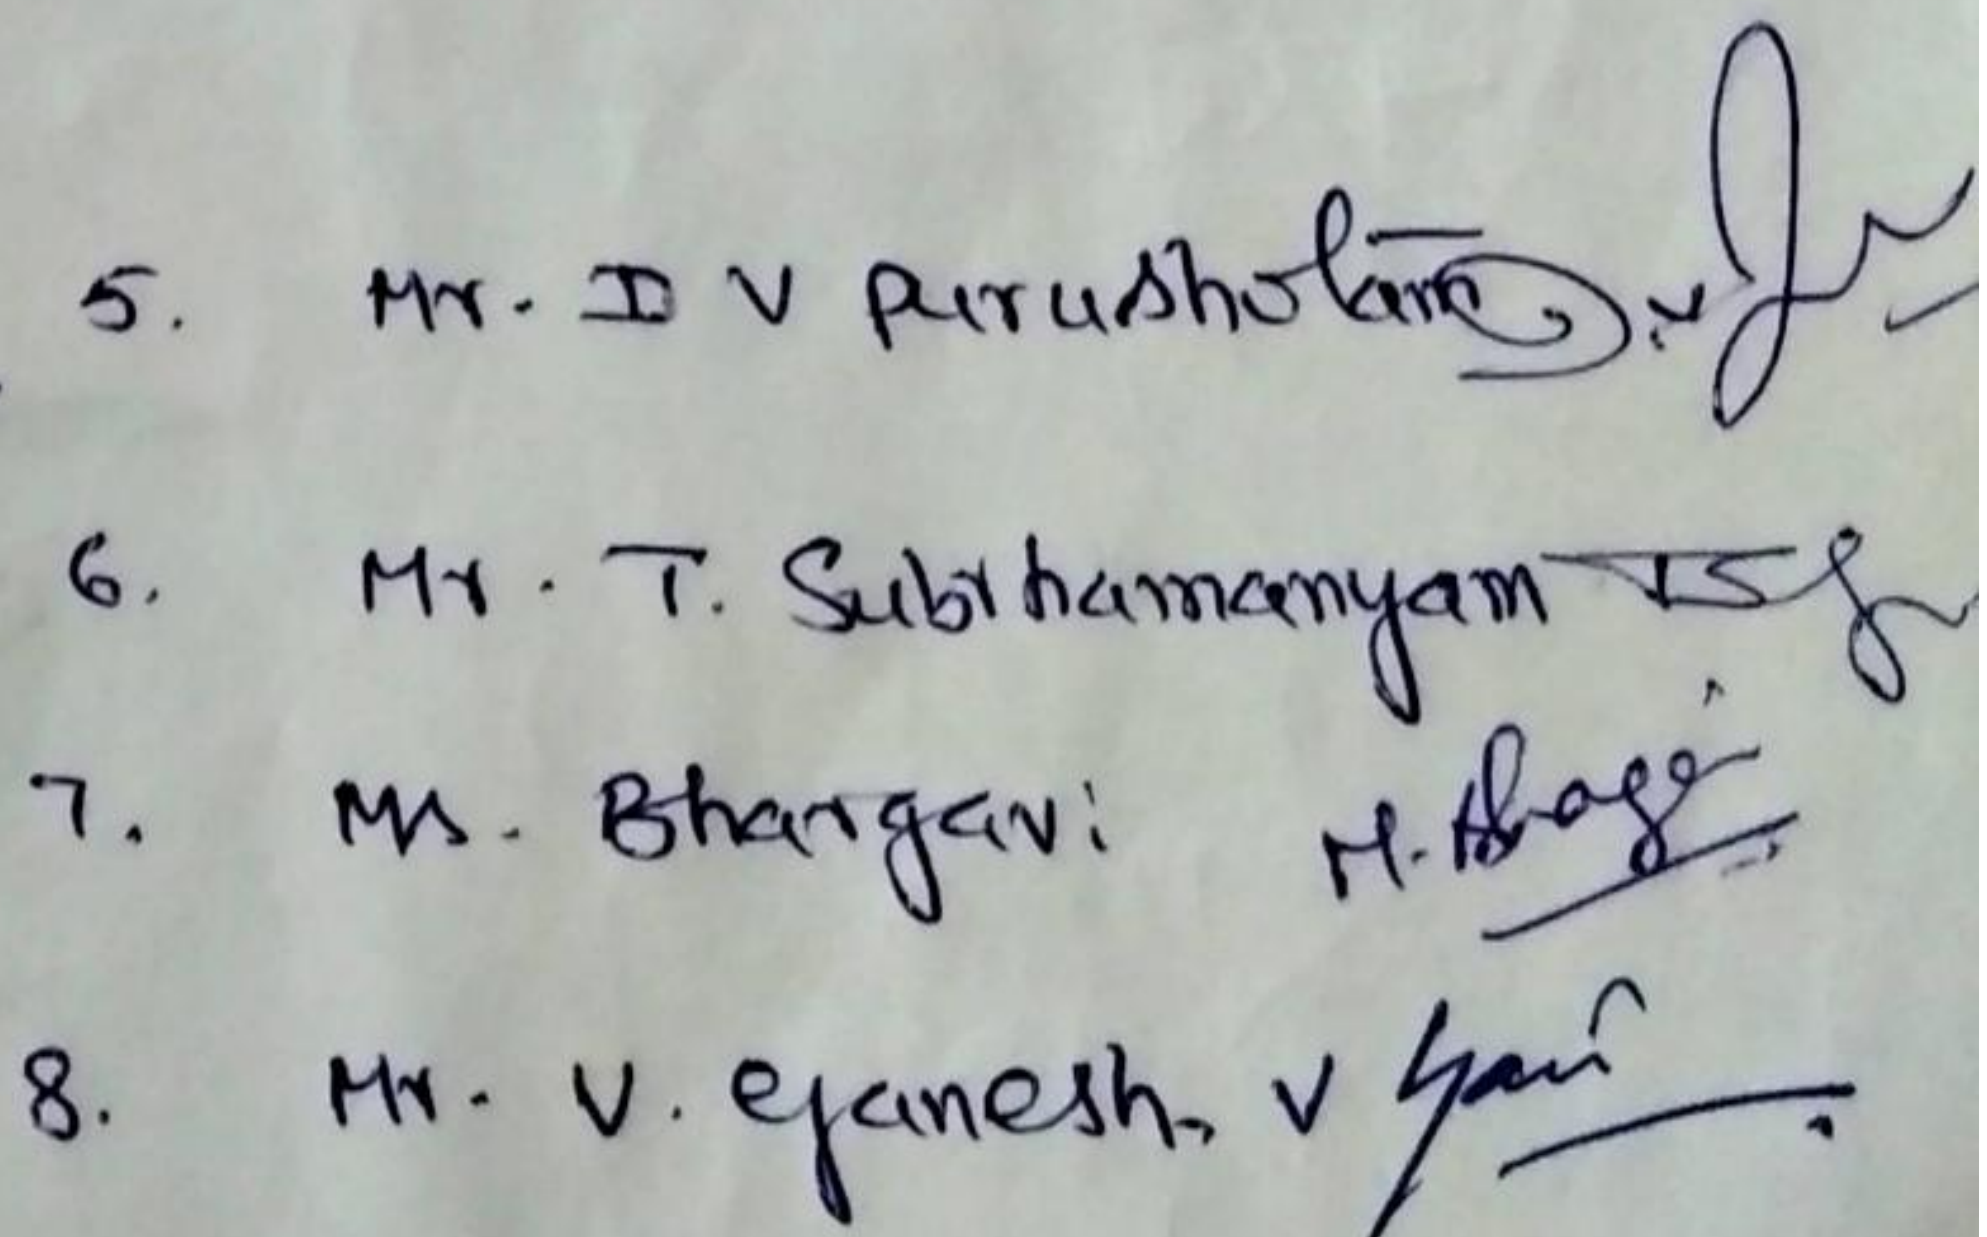 5. Mr. D V Purushotam
6. Mr. T. Subrhamanyam
7. Ms. Bhargavi
8. Mr. V. Ganesh